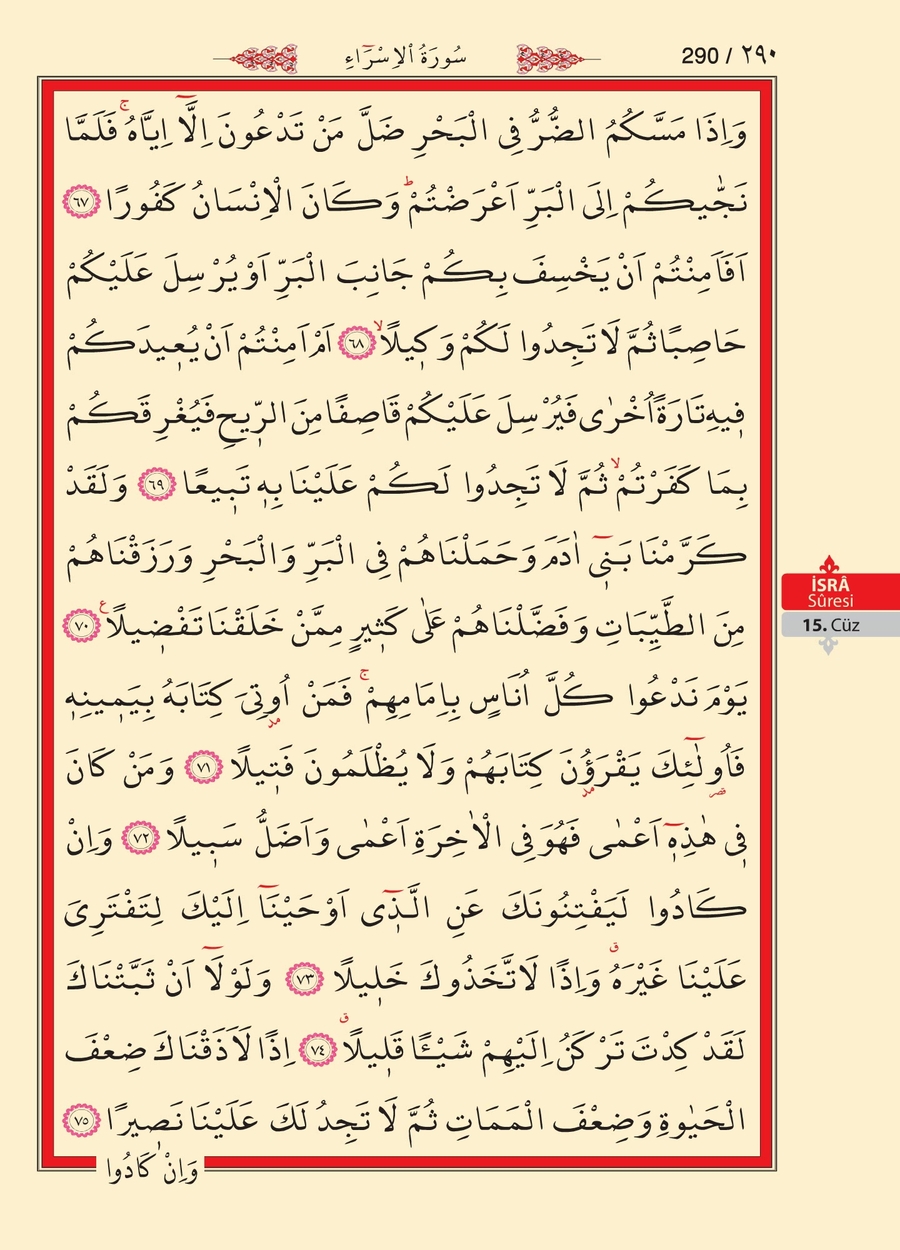 290 / ٢٩٠
سُورَةُ الْاِسْرَٓاءِ
وَاِذَا مَسَّكُمُ الضُّرُّ فِى الْبَحْرِ ضَلَّ مَنْ تَدْعُونَ اِلَّٓا اِيَّاهُۚ فَلَمَّا
نَجّٰيكُمْ اِلَى الْبَرِّ اَعْرَضْتُمْۜ وَكَانَ الْاِنْسَانُ كَفُورًا ﴿٦٧﴾
اَفَاَمِنْتُمْ اَنْ يَخْسِفَ بِكُمْ جَانِبَ الْبَرِّ اَوْ يُرْسِلَ عَلَيْكُمْ
حَاصِبًا ثُمَّ لَا تَجِدُوا لَكُمْ وَكٖيلًاۙ ﴿٦٨﴾ اَمْ اَمِنْتُمْ اَنْ يُعٖيدَكُمْ
فٖيهِ تَارَةً اُخْرٰى فَيُرْسِلَ عَلَيْكُمْ قَاصِفًا مِنَ الرّٖيحِ فَيُغْرِقَكُمْ
بِمَا كَفَرْتُمْۙ ثُمَّ لَا تَجِدُوا لَكُمْ عَلَيْنَا بِهٖ تَبٖيعًا ﴿٦٩﴾ وَلَقَدْ
كَرَّمْنَا بَنٖٓى اٰدَمَ وَحَمَلْنَاهُمْ فِى الْبَرِّ وَالْبَحْرِ وَرَزَقْنَاهُمْ
مِنَ الطَّيِّبَاتِ وَفَضَّلْنَاهُمْ عَلٰى كَثٖيرٍ مِمَّنْ خَلَقْنَا تَفْضٖيلًاࣖ ﴿٧٠﴾
يَوْمَ نَدْعُوا كُلَّ اُنَاسٍ بِاِمَامِهِمْۚ فَمَنْ اُو۫تِىَ كِتَابَهُ بِيَمٖينِهٖ
فَاُو۬لٰٓئِكَ يَقْرَؤُ۫نَ كِتَابَهُمْ وَلَا يُظْلَمُونَ فَتٖيلًا ﴿٧١﴾ وَمَنْ كَانَ
فٖى هٰذِهٖٓ اَعْمٰى فَهُوَ فِى الْاٰخِرَةِ اَعْمٰى وَاَضَلُّ سَبٖيلًا ﴿٧٢﴾ وَاِنْ
كَادُوا لَيَفْتِنُونَكَ عَنِ الَّذٖٓى اَوْحَيْنَٓا اِلَيْكَ لِتَفْتَرِىَ
عَلَيْنَا غَيْرَهُࣗ وَاِذًا لَاتَّخَذُوكَ خَلٖيلًا ﴿٧٣﴾ وَلَوْلَٓا اَنْ ثَبَّتْنَاكَ
لَقَدْ كِدْتَ تَرْكَنُ اِلَيْهِمْ شَيْـًٔا قَلٖيلًاࣗ ﴿٧٤﴾ اِذًا لَاَذَقْنَاكَ ضِعْفَ
الْحَيٰوةِ وَضِعْفَ الْمَمَاتِ ثُمَّ لَا تَجِدُ لَكَ عَلَيْنَا نَصٖيرًا ﴿٧٥﴾
وَاِنْ كَادُوا
İSRÂ
Sûresi
15. Cüz